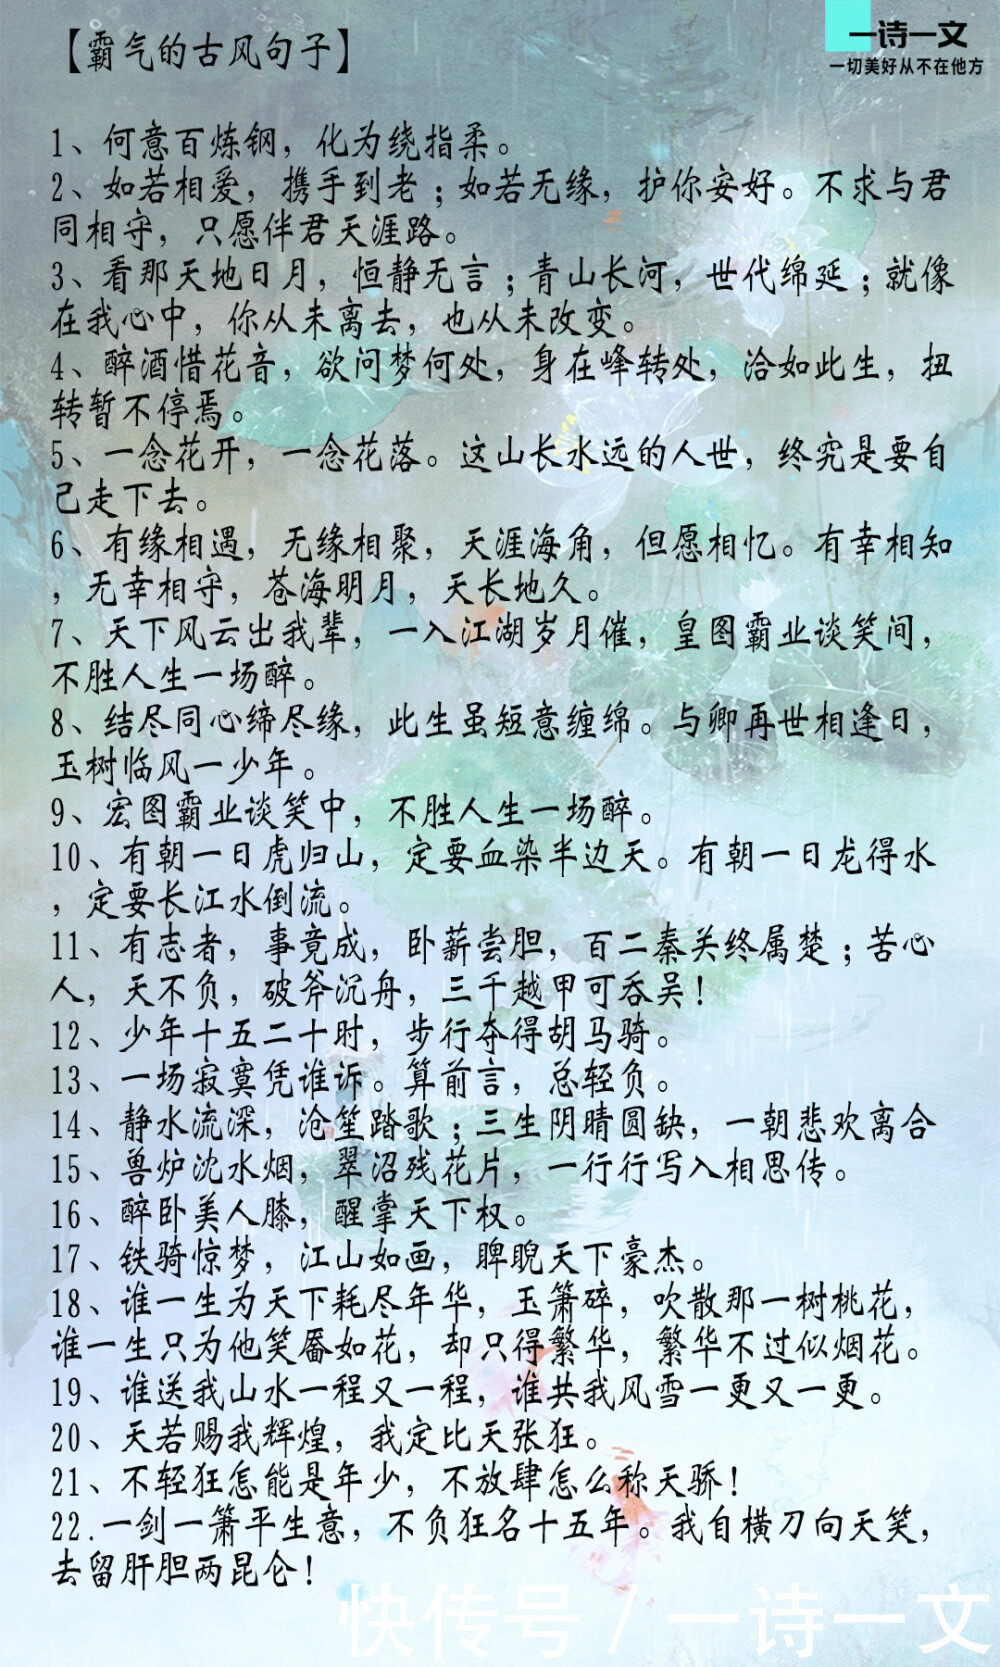 【霸气的古风句子】
一诗一文
一切美好从不在他方
1、何意百炼钢，化为绕指柔。
2、如若相爱，携手到老；如若无缘，护你安好。不求与君
同相守，只愿伴君天涯路。
3、看那天地日月，恒静无言；青山长河，世代绵延；就像
在我心中，你从未离去，也从未改变。
4、醉酒惜花音，欲问梦何处，身在峰转处，洽如此生，扭
转暂不停焉。
5、一念花开，一念花落。这山长水远的人世，终究是要自
己走下去。
6、有缘相遇，无缘相聚，天涯海角，但愿相忆。有幸相知
，无幸相守，苍海明月，天长地久。
7、天下风云出我辈，一入江湖岁月催，皇图霸业谈笑间，
不胜人生一场醉。
8、结尽同心缔尽缘，此生虽短意缠绵。与卿再世相逢日，
玉树临风一少年。
9、宏图霸业谈笑中，不胜人生一场醉。
10、有朝一日虎归山，定要血染半边天。有朝一日龙得水
，定要长江水倒流。
11、有志者，事竟成，卧薪尝胆，百二秦关终属楚；苦心
人，天不负，破斧沉舟，三千越甲可吞吴！
12、少年十五二十时，步行夺得胡马骑。
13、一场寂寞凭谁诉。算前言，总轻负。
14、静水流深，沧笙踏歌；三生阴晴圆缺，一朝悲欢离合
15、兽炉沈水烟，翠沼残花片，一行行写入相思传。
16、醉卧美人膝，醒掌天下权。
17、铁骑惊梦，江山如画，睥睨天下豪杰。
18、谁一生为天下耗尽年华，玉箫碎，吹散那一树桃花，
谁一生只为他笑靥如花，却只得繁华，繁华不过似烟花。
19、谁送我山水一程又一程，谁共我风雪一更又一更。
20、天若赐我辉煌，我定比天张狂。
21、不轻狂怎能是年少，不放肆怎么称天骄！
22.一剑一箫平生意，不负狂名十五年。我自横刀向天笑，
去留肝胆两昆仑！
快传号／一诗一文